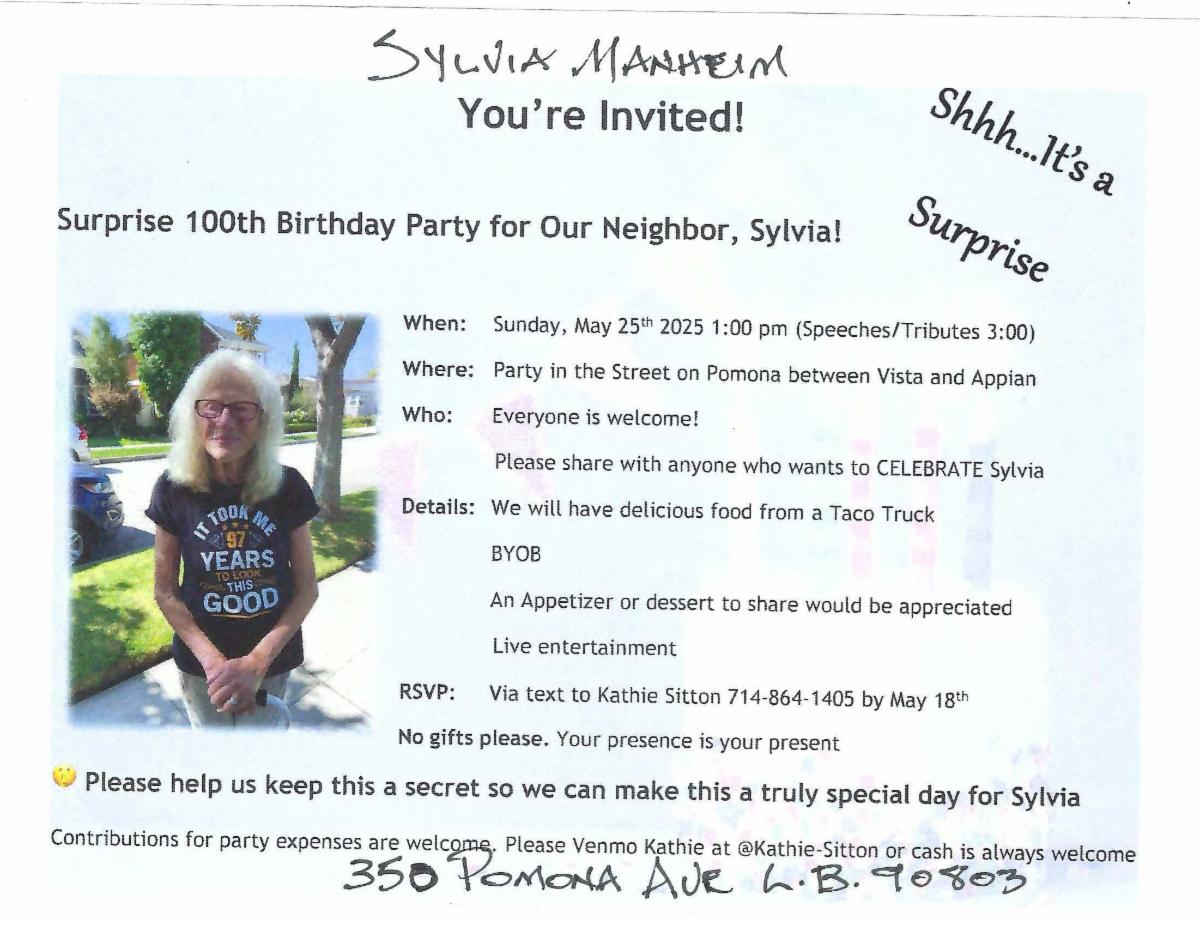 SYLVIA MANHEIM
You're Invited!
Shhh...It's a
Surprise
Surprise 100th Birthday Party for Our Neighbor, Sylvia!
When: Sunday, May 25th 2025 1:00 pm (Speeches/Tributes 3:00)
Where: Party in the Street on Pomona between Vista and Appian
Who: Everyone is welcome!
Please share with anyone who wants to CELEBRATE Sylvia
Details: We will have delicious food from a Taco Truck
BYOB
An Appetizer or dessert to share would be appreciated
Live entertainment
RSVP: Via text to Kathie Sitton 714-864-1405 by May 18th
No gifts please. Your presence is your present
IT TOOK ME
97
YEARS
TO LOOK
THIS
GOOD
🤫 Please help us keep this a secret so we can make this a truly special day for Sylvia
Contributions for party expenses are welcome. Please Venmo Kathie at @Kathie-Sitton or cash is always welcome
350 POMONA AVE L.B. 90803